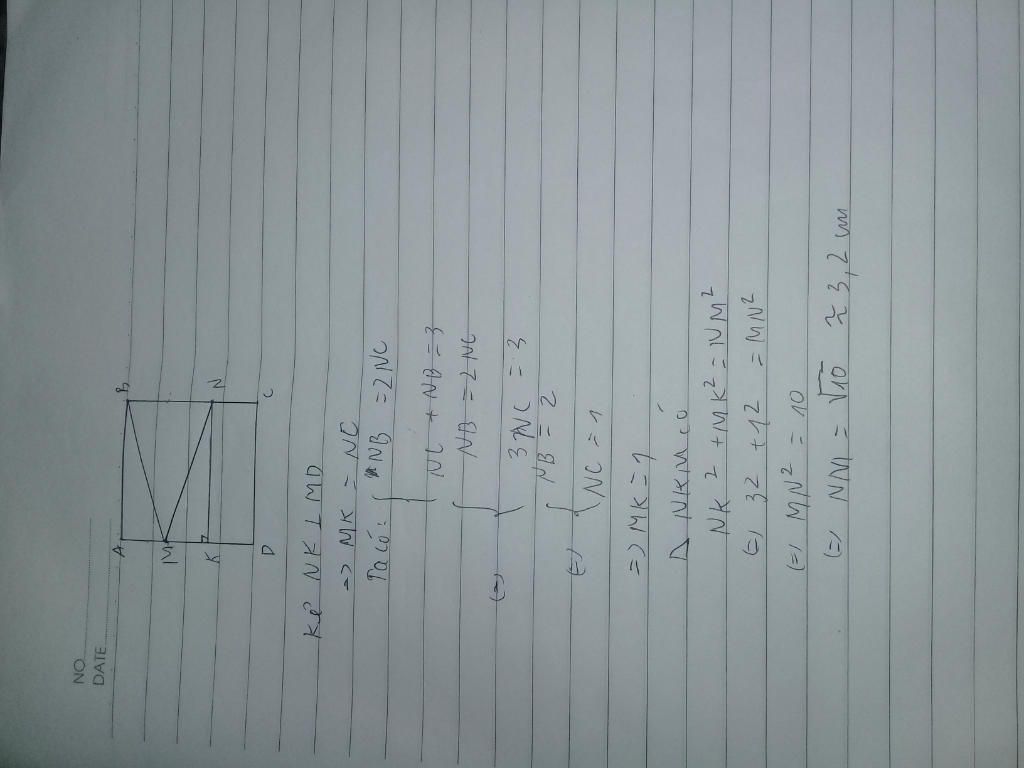 NO.
DATE
A B
M
K N
D C
Kẻ NK ⊥ MD
=> MK = NC
Ta có: { NB = 2NC
{ NC + NB = 3
{ NB = 2NC
(=) { 3NC = 3
{ NB = 2
(=) { NC = 1
=> MK = 1
Δ NKM có
NK² + MK² = NM²
(=) 3² + 1² = MN²
(=) MN² = 10
(=) NM = √10 ≈ 3,2 cm